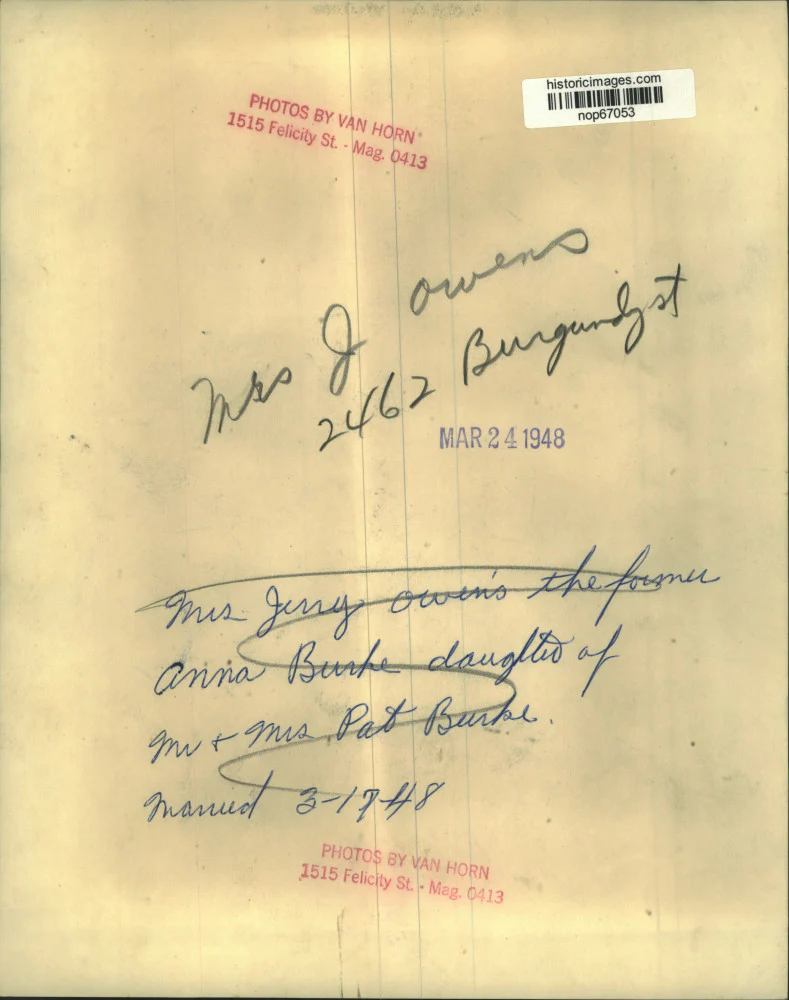 historicimages.com
nop67053
PHOTOS BY VAN HORN
1515 Felicity St. - Mag. 0413
Mrs J owens
2462 Burgundy st
MAR 24 1948
Mrs Jerry owens the former
anna Burke daughter of
Mr + Mrs Pat Burke.
married 3-17-48
PHOTOS BY VAN HORN
1515 Felicity St. - Mag. 0413